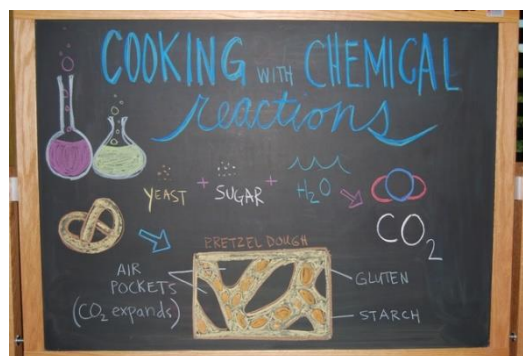 COOKING WITH CHEMICAL
reactions
YEAST + SUGAR + H2O
CO2
PRETZEL DOUGH
AIR
POCKETS
(CO2 expands)
GLUTEN
STARCH